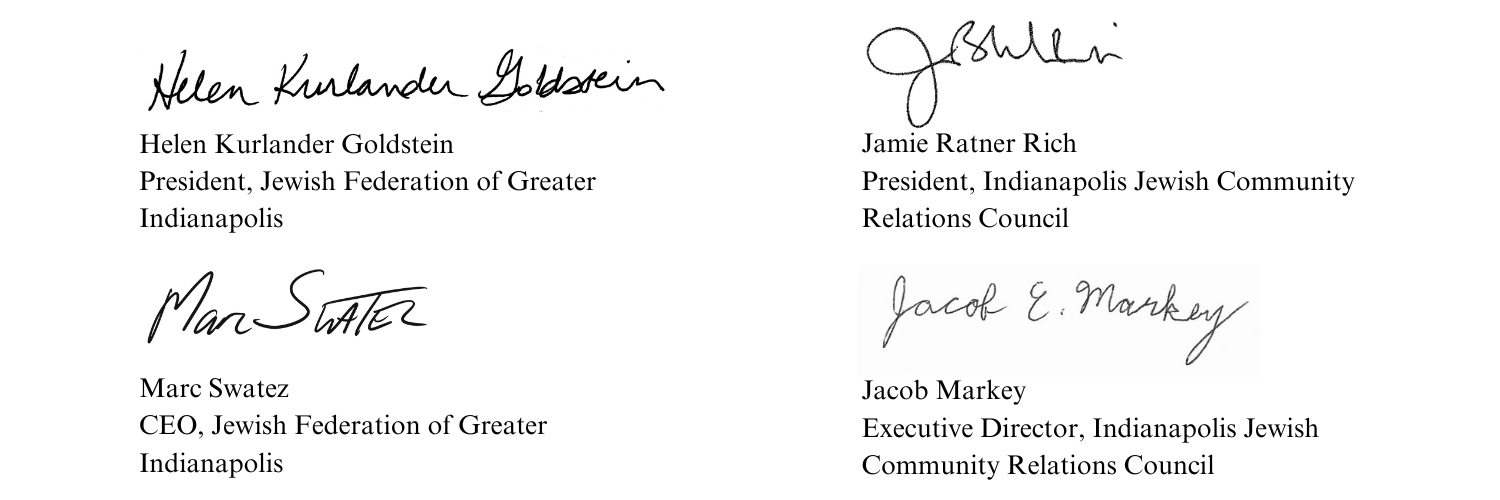 Helen Kurlander Goldstein
Helen Kurlander Goldstein
President, Jewish Federation of Greater
Indianapolis
Jamie Ratner Rich
President, Indianapolis Jewish Community
Relations Council
Marc Swatez
Marc Swatez
CEO, Jewish Federation of Greater
Indianapolis
Jacob E. Markey
Jacob Markey
Executive Director, Indianapolis Jewish
Community Relations Council